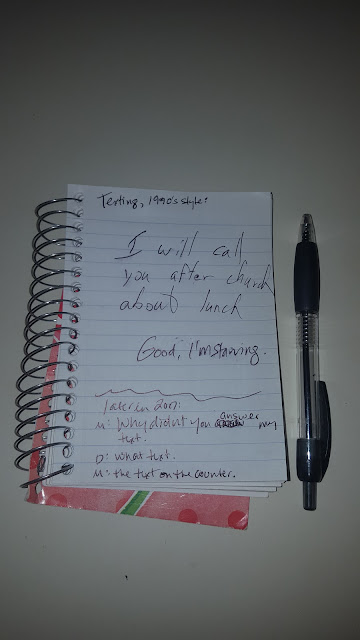 Texting, 1990's style:
I will call
you after church
about lunch
Good, I'm starving.
later in 2017:
M: Why didn't you answer my
text.
D: what text.
M: the text on the counter.